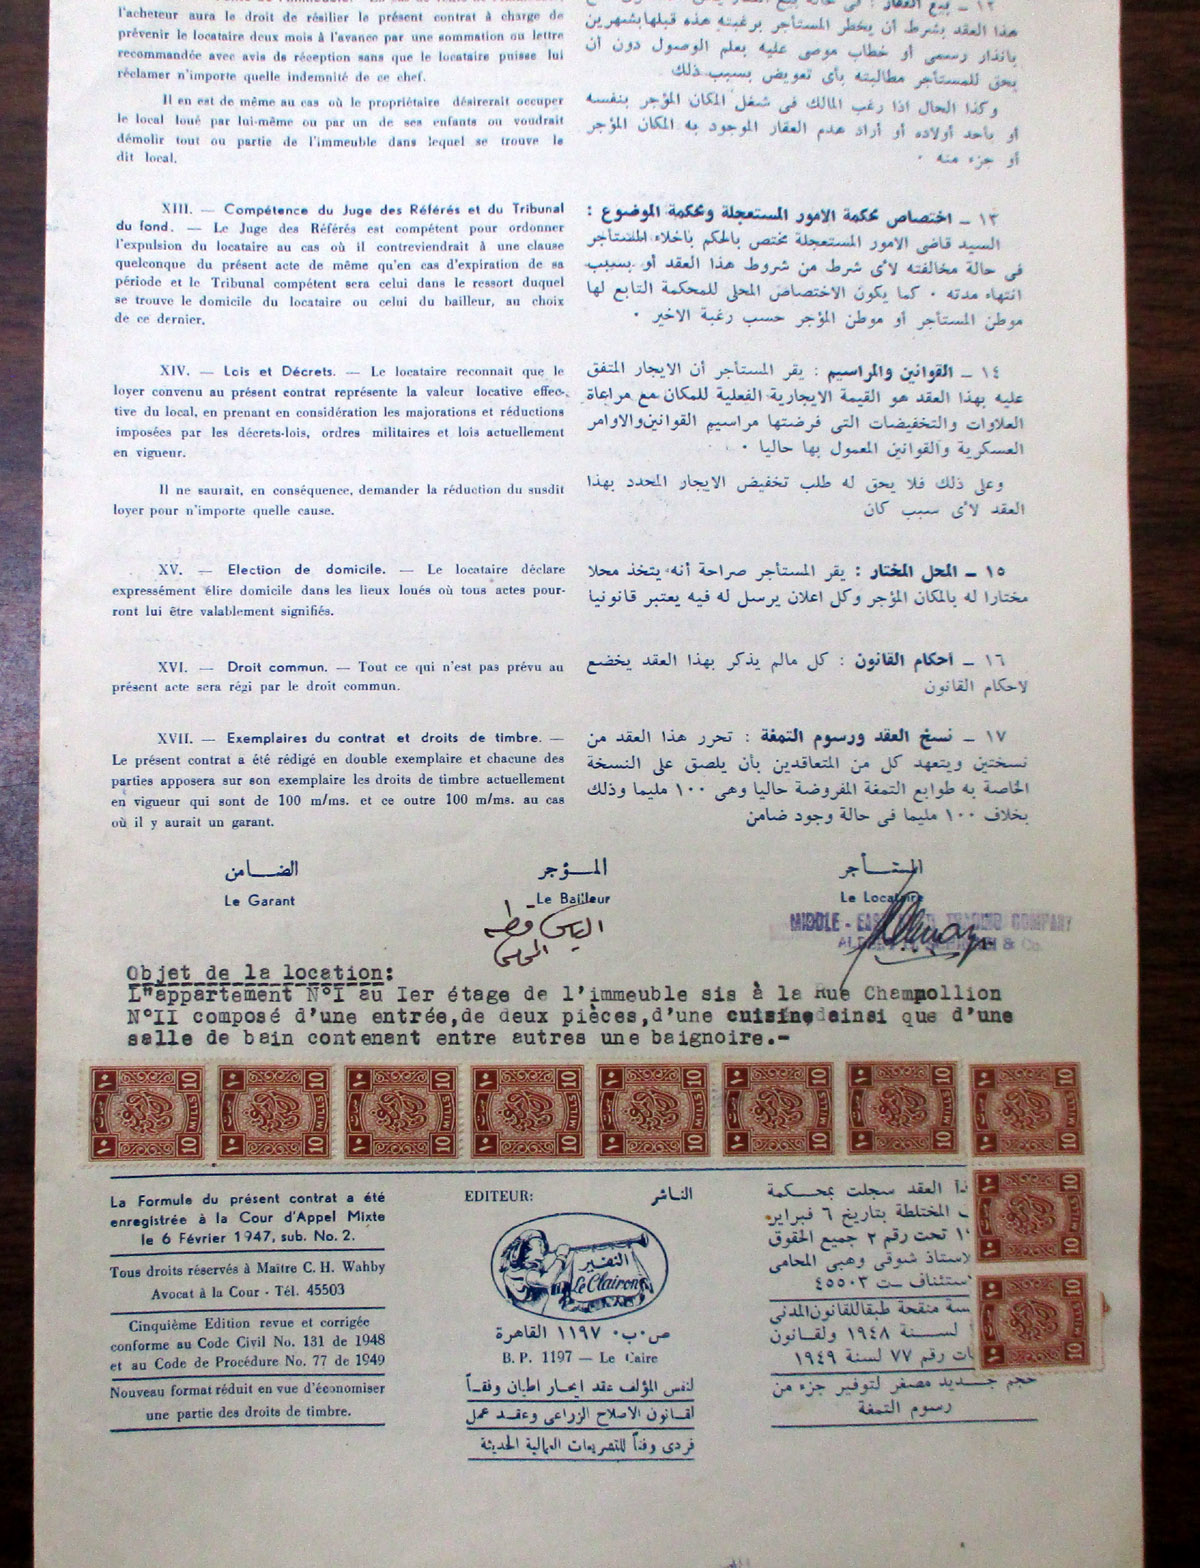 l'acheteur aura le droit de résilier le présent contrat à charge de
prévenir le locataire deux mois à l'avance par une sommation ou lettre
recommandée avec avis de réception sans que le locataire puisse lui
réclamer n'importe quelle indemnité de ce chef.
Il en est de même au cas où le propriétaire désirerait occuper
le local loué par lui-même ou par un de ses enfants ou voudrait
démolir tout ou partie de l'immeuble dans lequel se trouve le
dit local.
XIII. — Compétence du Juge des Référés et du Tribunal
du fond. — Le Juge des Référés est compétent pour ordonner
l'expulsion du locataire au cas où il contreviendrait à une clause
quelconque du présent acte de même qu'en cas d'expiration de sa
période et le Tribunal compétent sera celui dans le ressort duquel
se trouve le domicile du locataire ou celui du bailleur, au choix
de ce dernier.
XIV. — Lois et Décrets. — Le locataire reconnait que le
loyer convenu au présent contrat représente la valeur locative effec-
tive du local, en prenant en considération les majorations et réductions
imposées par les décrets-lois, ordres militaires et lois actuellement
en vigueur.
Il ne saurait, en conséquence, demander la réduction du susdit
loyer pour n'importe quelle cause.
XV. — Election de domicile. — Le locataire déclare
expressément élire domicile dans les lieux loués où tous actes pour-
ront lui être valablement signifiés.
XVI. — Droit commun. — Tout ce qui n'est pas prévu au
présent acte sera régi par le droit commun.
XVII. — Exemplaires du contrat et droits de timbre. —
Le présent contrat a été rédigé en double exemplaire et chacune des
parties apposera sur son exemplaire les droits de timbre actuellement
en vigueur qui sont de 100 m/ms. et ce outre 100 m/ms. au cas
où il y aurait un garant.
هذا العقد بشرط أن يخطر المستأجر برغبته هذه قبلها بشهرين
بانذار رسمى أو خطاب موصى عليه بعلم الوصول دون أن
يحق للمستأجر مطالبته بأى تعويض بسبب ذلك
وكذا الحال اذا رغب المالك فى شغل المكان المؤجر بنفسه
أو بأحد أولاده أو أراد هدم العقار الموجود به المكان المؤجر
أو جزء منه .
١٣ ـ اختصاص محكمة الامور المستعجلة ومحكمة الموضوع :
السيد قاضى الامور المستعجلة مختص بالحكم باخلاء المستأجر
فى حالة مخالفته لأى شرط من شروط هذا العقد أو بسبب
انتهاء مدته . كما يكون الاختصاص المحلى للمحكمة التابع لها
موطن المستأجر أو موطن المؤجر حسب رغبة الاخير .
١٤ ـ القوانين والمراسيم : يقر المستأجر أن الايجار المتفق
عليه بهذا العقد هو القيمة الايجارية الفعلية للمكان مع مراعاة
العلاوات والتخفيضات التى فرضتها مراسيم القوانين والاوامر
العسكرية والقوانين المعمول بها حاليا .
وعلى ذلك فلا يحق له طلب تخفيض الايجار المحدد بهذا
العقد لأى سبب كان
١٥ ـ المحل المختار : يقر المستأجر صراحة أنه يتخذ محلا
مختارا له بالمكان المؤجر وكل اعلان يرسل له فيه يعتبر قانونيا
١٦ ـ أحكام القانون : كل مالم يذكر بهذا العقد يخضع
لاحكام القانون
١٧ ـ نسخ العقد ورسوم التمغة : تحرر هذا العقد من
نسختين ويتعهد كل من المتعاقدين بأن يلصق على النسخة
الخاصة به طوابع التمغة المفروضة حاليا وهى ١٠٠ مليما وذلك
بخلاف ١٠٠ مليما فى حالة وجود ضامن
الضامن
Le Garant
المؤجر
Le Bailleur
المستأجر
Le Locataire
MIDDLE - EAST TRADING COMPANY
& Co.
Objet de la location:
L"appartement N°I au Ier étage de l'immeuble sis à la Rue Champollion
N°II composé d'une entrée,de deux pièces,d'une cuisine,dainsi que d'une
salle de bain contenant entre autres une baignoire.-
10 10 10 10 10 10 10 10
10
10
La Formule du présent contrat a été
enregistrée à la Cour d'Appel Mixte
le 6 Février 1947, sub. No. 2.
Tous droits réservés à Maître C. H. Wahby
Avocat à la Cour - Tél. 45503
Cinquième Edition revue et corrigée
conforme au Code Civil No. 131 de 1948
et au Code de Procédure No. 77 de 1949
Nouveau format réduit en vue d'économiser
une partie des droits de timbre.
EDITEUR: الناشر
النفير
Le Clairon
ص.ب. ١١٩٧ القاهرة
B. P. 1197 — Le Caire
لنفس المؤلف عقد ايجار اطيان وفقاً
لقانون الاصلاح الزراعى وعقد عمل
فردى وفقاً للتشريعات العمالية الحديثة
العقد سجلت بمحكمة
المختلطة بتاريخ ٦ فبراير
تحت رقم ٢ جميع الحقوق
شوقى وهبى المحامى
ت ٤٥٥٠٣
منقحة طبقا للقانون المدنى
لسنة ١٩٤٨ ولقانون
رقم ٧٧ لسنة ١٩٤٩
حجم جديد مصغر لتوفير جزء من
رسوم التمغة